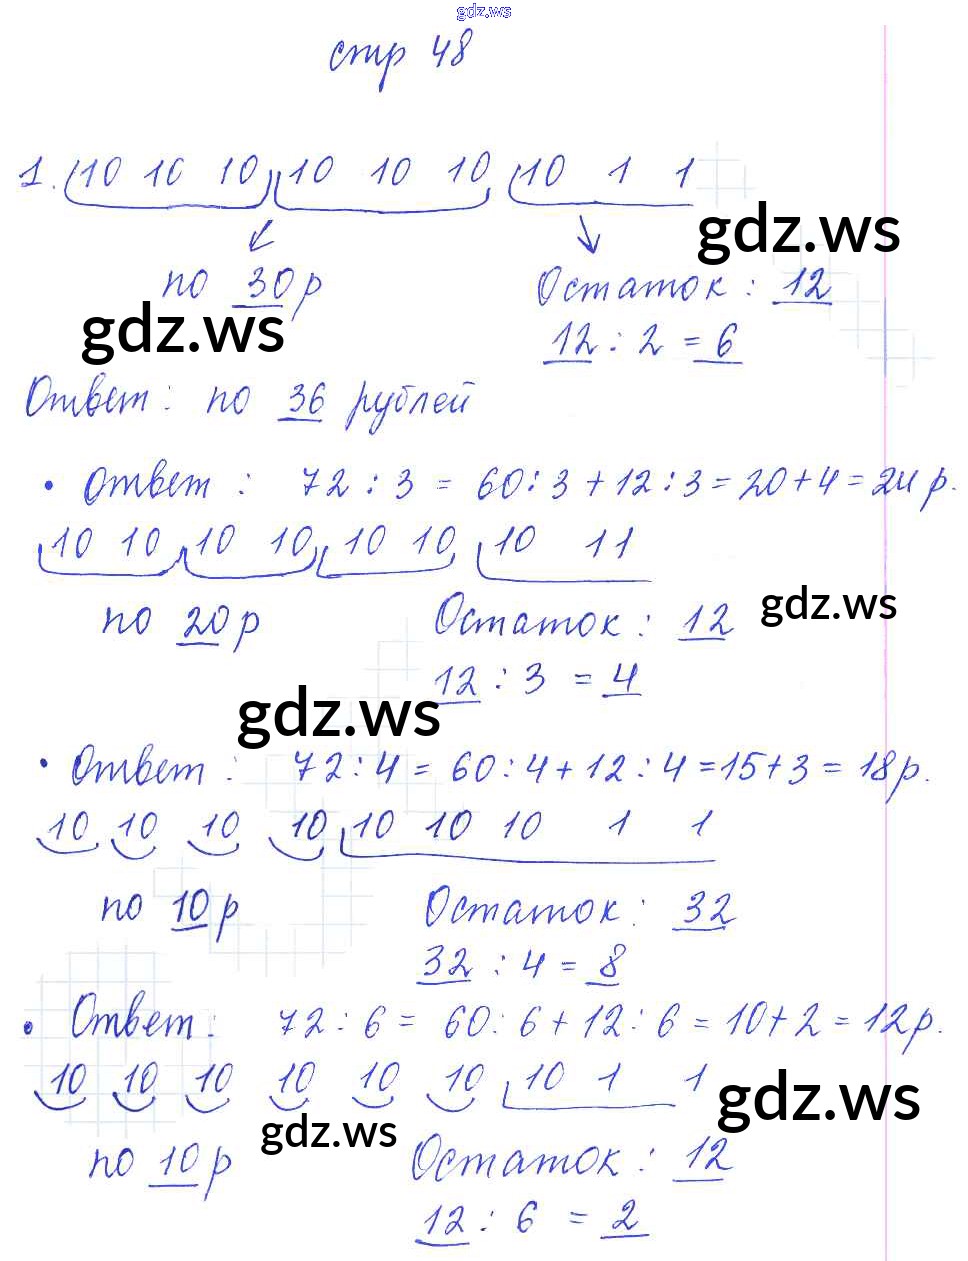 gdz.ws
стр 48
1. 10 10 10 10 10 10 10 1 1
gdz.ws
по 30 р Остаток : 12
gdz.ws
12 : 2 = 6
Ответ : по 36 рублей
• Ответ : 72 : 3 = 60 : 3 + 12 : 3 = 20 + 4 = 24 р.
10 10 10 10 10 10 10 1 1
gdz.ws
по 20 р Остаток : 12
12 : 3 = 4
gdz.ws
• Ответ : 72 : 4 = 60 : 4 + 12 : 4 = 15 + 3 = 18 р.
10 10 10 10 10 10 10 1 1
по 10 р Остаток : 32
32 : 4 = 8
• Ответ : 72 : 6 = 60 : 6 + 12 : 6 = 10 + 2 = 12 р.
10 10 10 10 10 10 10 1 1
gdz.ws
gdz.ws
по 10 р Остаток : 12
12 : 6 = 2